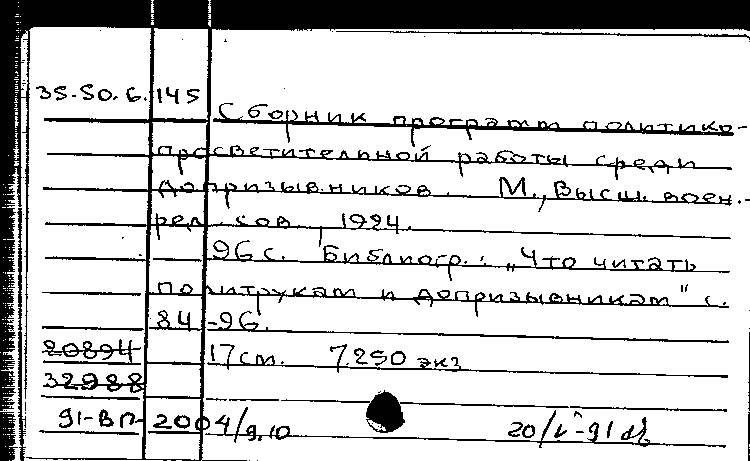 35.50.6.145
Сборник программ политико-
просветительной работы среди
допризывников. М., Высш. воен.-
ред. сов, 1924.
96 с. Библиогр.: „Что читать
политрукам и допризывникам" с.
84-96.
20894 17 см. 7.250 экз
32988
91-ВП-2004/9.10 20/V-91